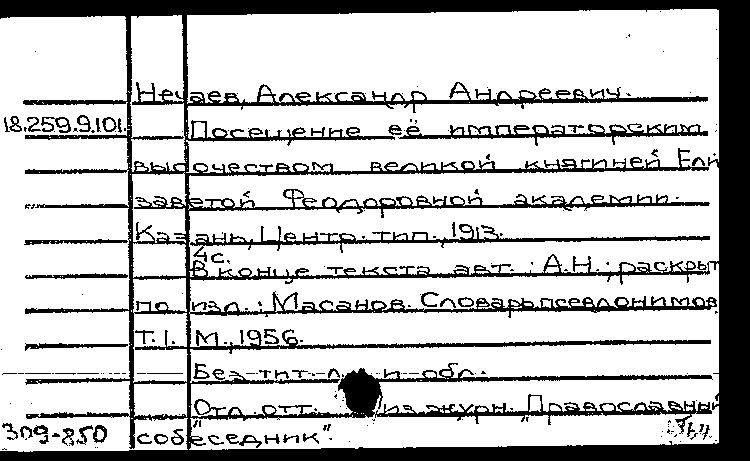 Нечаев, Александр Андреевич.
18.259.9.101. Посещение её императорским
высочеством великой княгиней Ели
заветой Феодоровной академии.
Казань, Центр. тип., 1913.
4с.
В конце текста авт.: А.Н.; раскрыт
по изд.: Масанов. Словарь псевдонимов
Т.I. М., 1956.
Без тит. л. и обл.
Отд. отт. из журн. "Православный
309-850 собеседник".